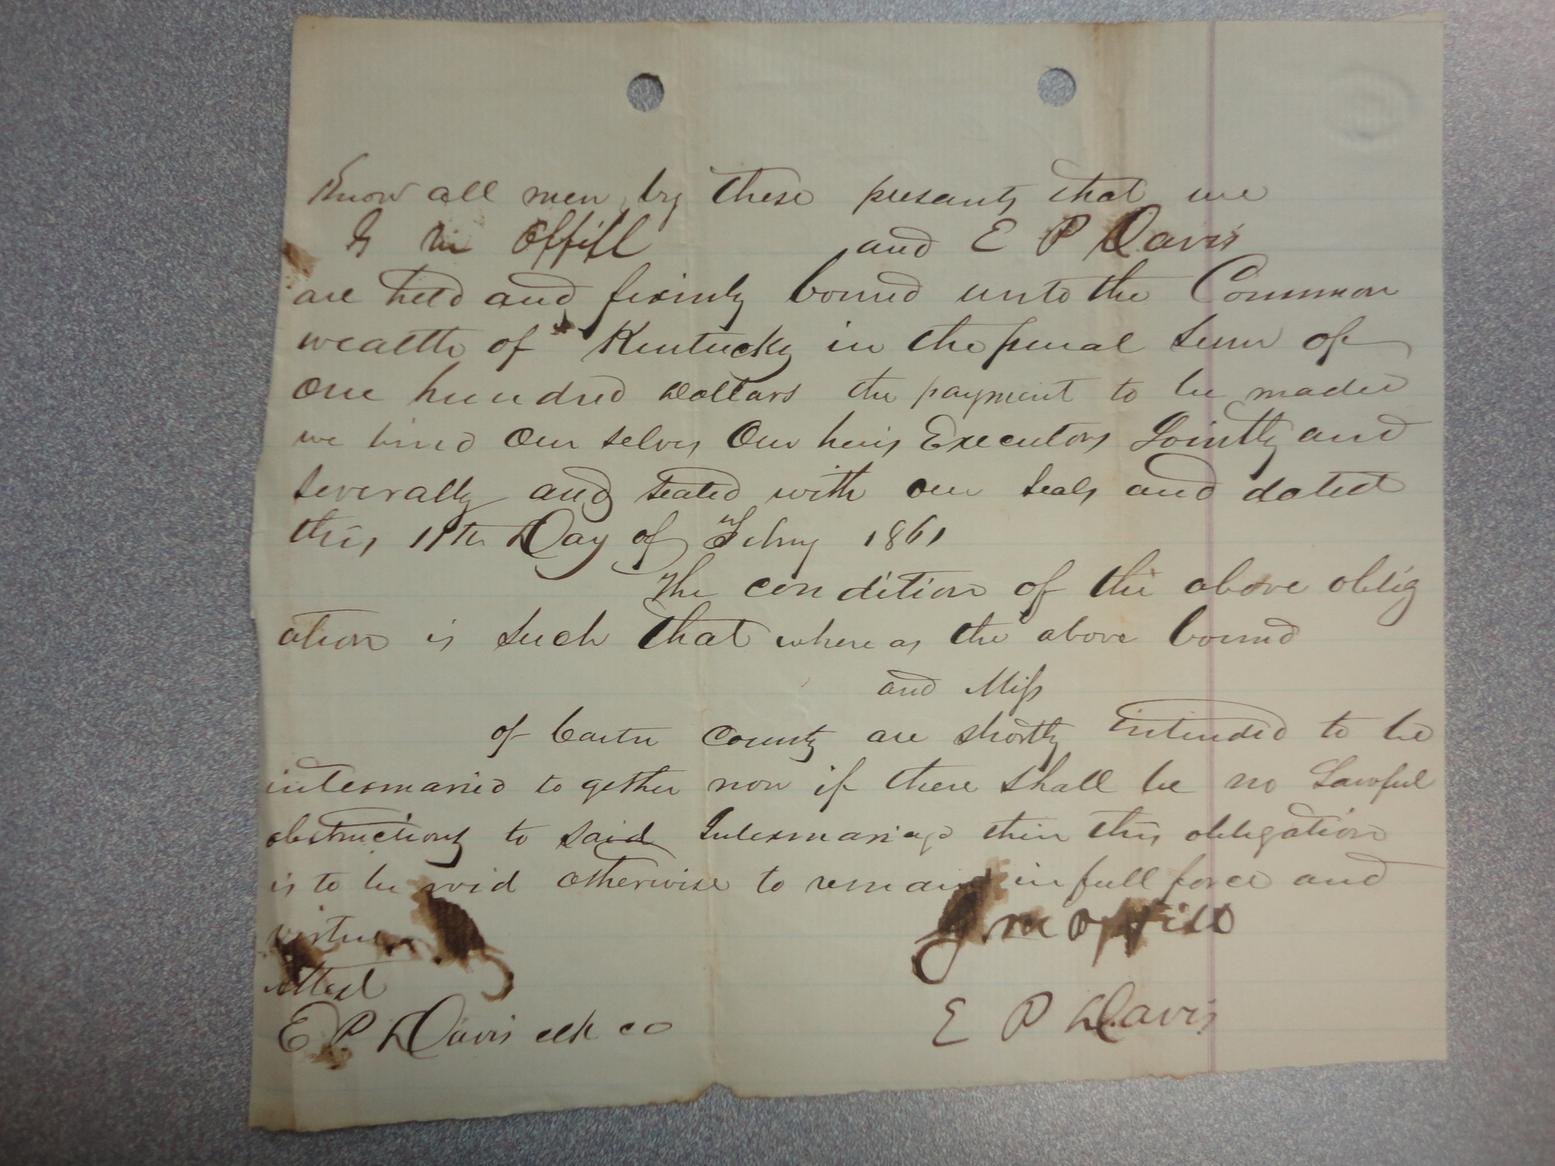 Know all men by these presants that we
J M Offill and E P Davis
are held and firmly bound unto the Common
wealth of Kentucky in the penal sum of
One hundred Dollars the payment to be made
we bind our selves our heirs Executors Jointly and
severally and sealed with our seals and dated
this Day of Febuy 1861
The condition of the above oblig
ation is such that where as the above bound
and Miss
of Carter County are shortly intended to be
intermaried to gether now if there shall be no Lawful
obstructions to said Intermariage then this obligation
is to be void otherwise to remain in full force and
virtue
J. M Offill
attest
E P Davis clk co
E P Davis